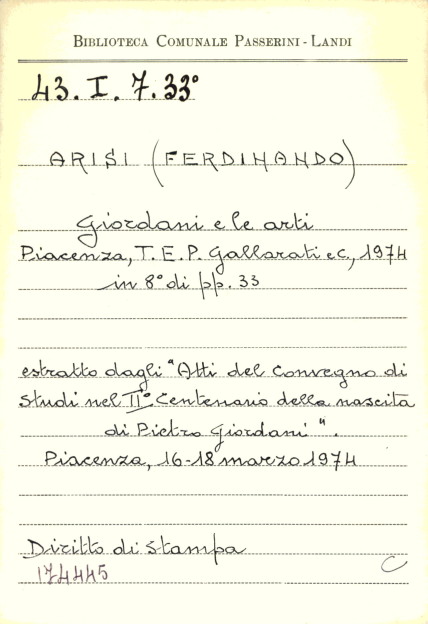 BIBLIOTECA COMUNALE PASSERINI - LANDI
43. I. 7. 33°
ARISI (FERDINANDO)
Giordani e le arti
Piacenza, T. E. P. Gallarati e C., 1974
in 8° di pp. 33
estratto dagli "Atti del Convegno di
Studi nel II° Centenario della nascita
di Pietro Giordani".
Piacenza, 16-18 marzo 1974
Diritto di stampa
174445
C